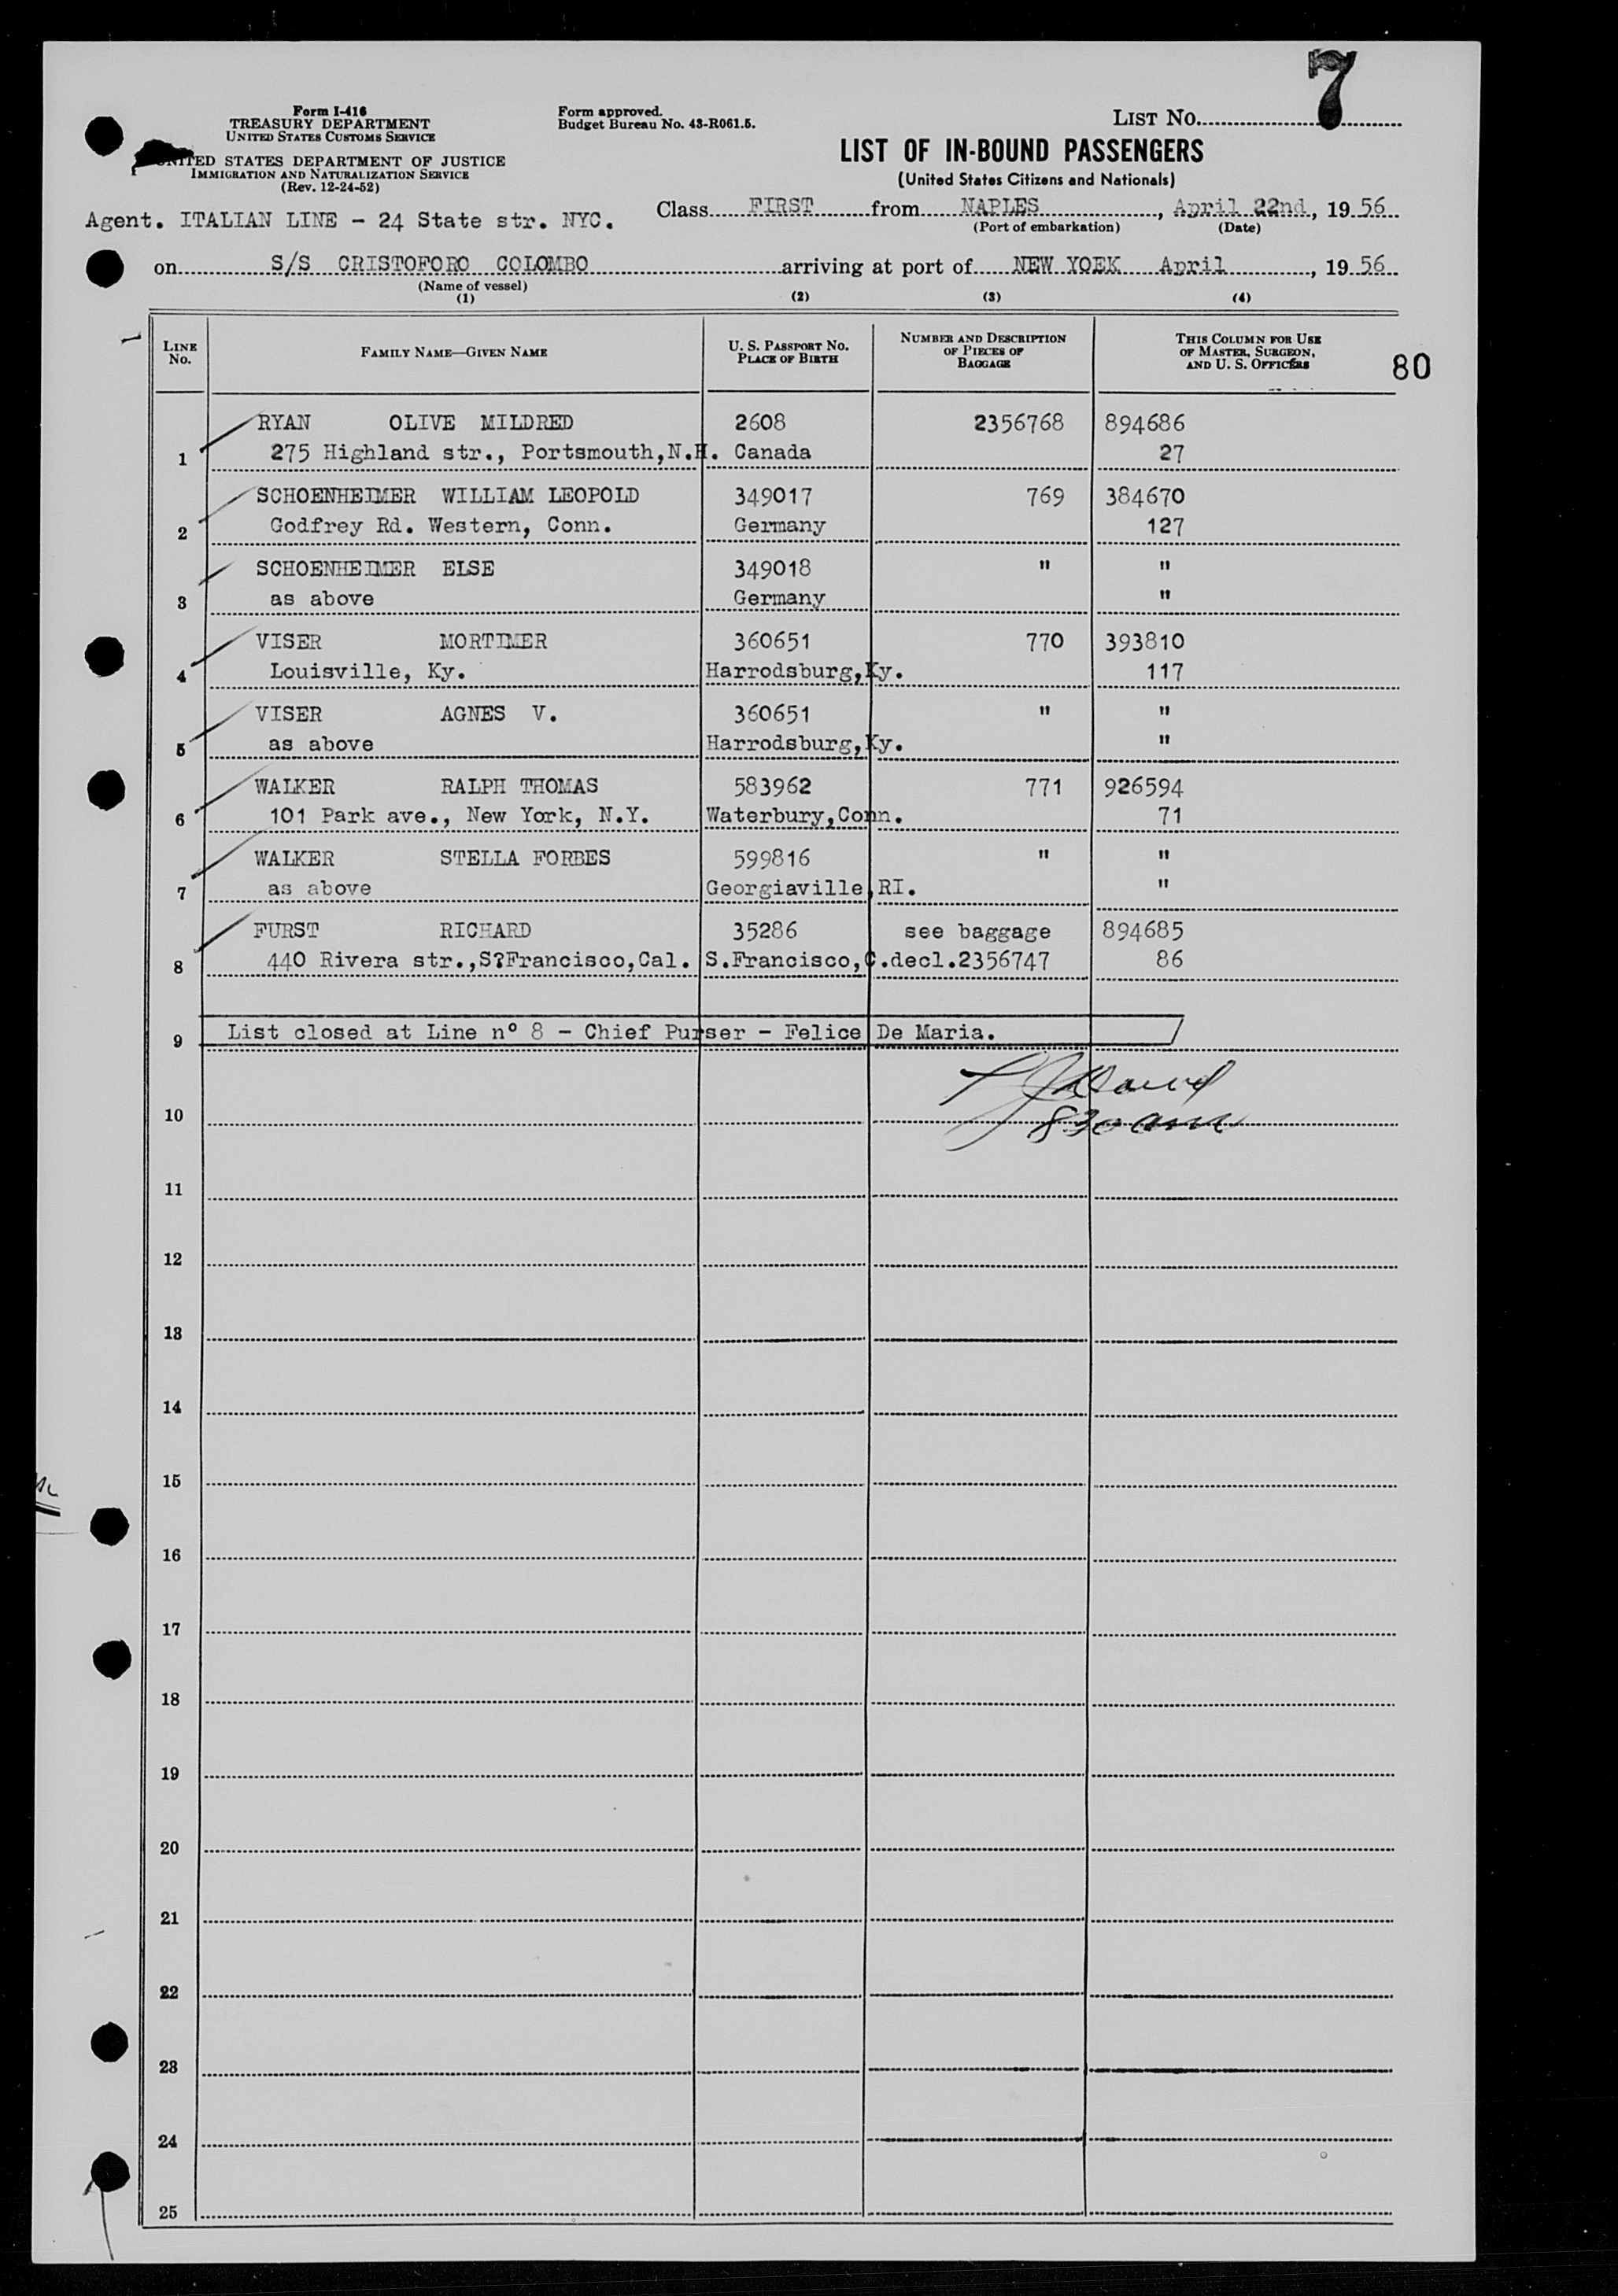 7
Form I-416
TREASURY DEPARTMENT
UNITED STATES CUSTOMS SERVICE
UNITED STATES DEPARTMENT OF JUSTICE
IMMIGRATION AND NATURALIZATION SERVICE
(Rev. 12-24-52)
Form approved.
Budget Bureau No. 43-R061.5.
LIST No.
LIST OF IN-BOUND PASSENGERS
(United States Citizens and Nationals)
Agent. ITALIAN LINE - 24 State str. NYC.
Class FIRST from NAPLES, April 22nd, 19 56
(Port of embarkation) (Date)
on S/S CRISTOFORO COLOMBO arriving at port of NEW YOEK April, 19 56
(Name of vessel)
(1) (2) (3) (4)
LINE No. FAMILY NAME—GIVEN NAME U. S. PASSPORT NO. PLACE OF BIRTH NUMBER AND DESCRIPTION OF PIECES OF BAGGAGE THIS COLUMN FOR USE OF MASTER, SURGEON, AND U. S. OFFICERS 80
RYAN OLIVE MILDRED 2608 2356768 894686
1 275 Highland str., Portsmouth,N.H. Canada 27
SCHOENHEIMER WILLIAM LEOPOLD 349017 769 384670
2 Godfrey Rd. Western, Conn. Germany 127
SCHOENHEIMER ELSE 349018 " "
3 as above Germany "
VISER MORTIMER 360651 770 393810
4 Louisville, Ky. Harrodsburg,Ky. 117
VISER AGNES V. 360651 " "
5 as above Harrodsburg,Ky. "
WALKER RALPH THOMAS 583962 771 926594
6 101 Park ave., New York, N.Y. Waterbury,Conn. 71
WALKER STELLA FORBES 599816 " "
7 as above Georgiaville,RI. "
FURST RICHARD 35286 see baggage 894685
8 440 Rivera str.,S?Francisco,Cal. S.Francisco,C.decl.2356747 86
9 List closed at Line n° 8 - Chief Purser - Felice De Maria.
10 830 am
11
12
13
14
15
16
17
18
19
20
21
22
23
24
25